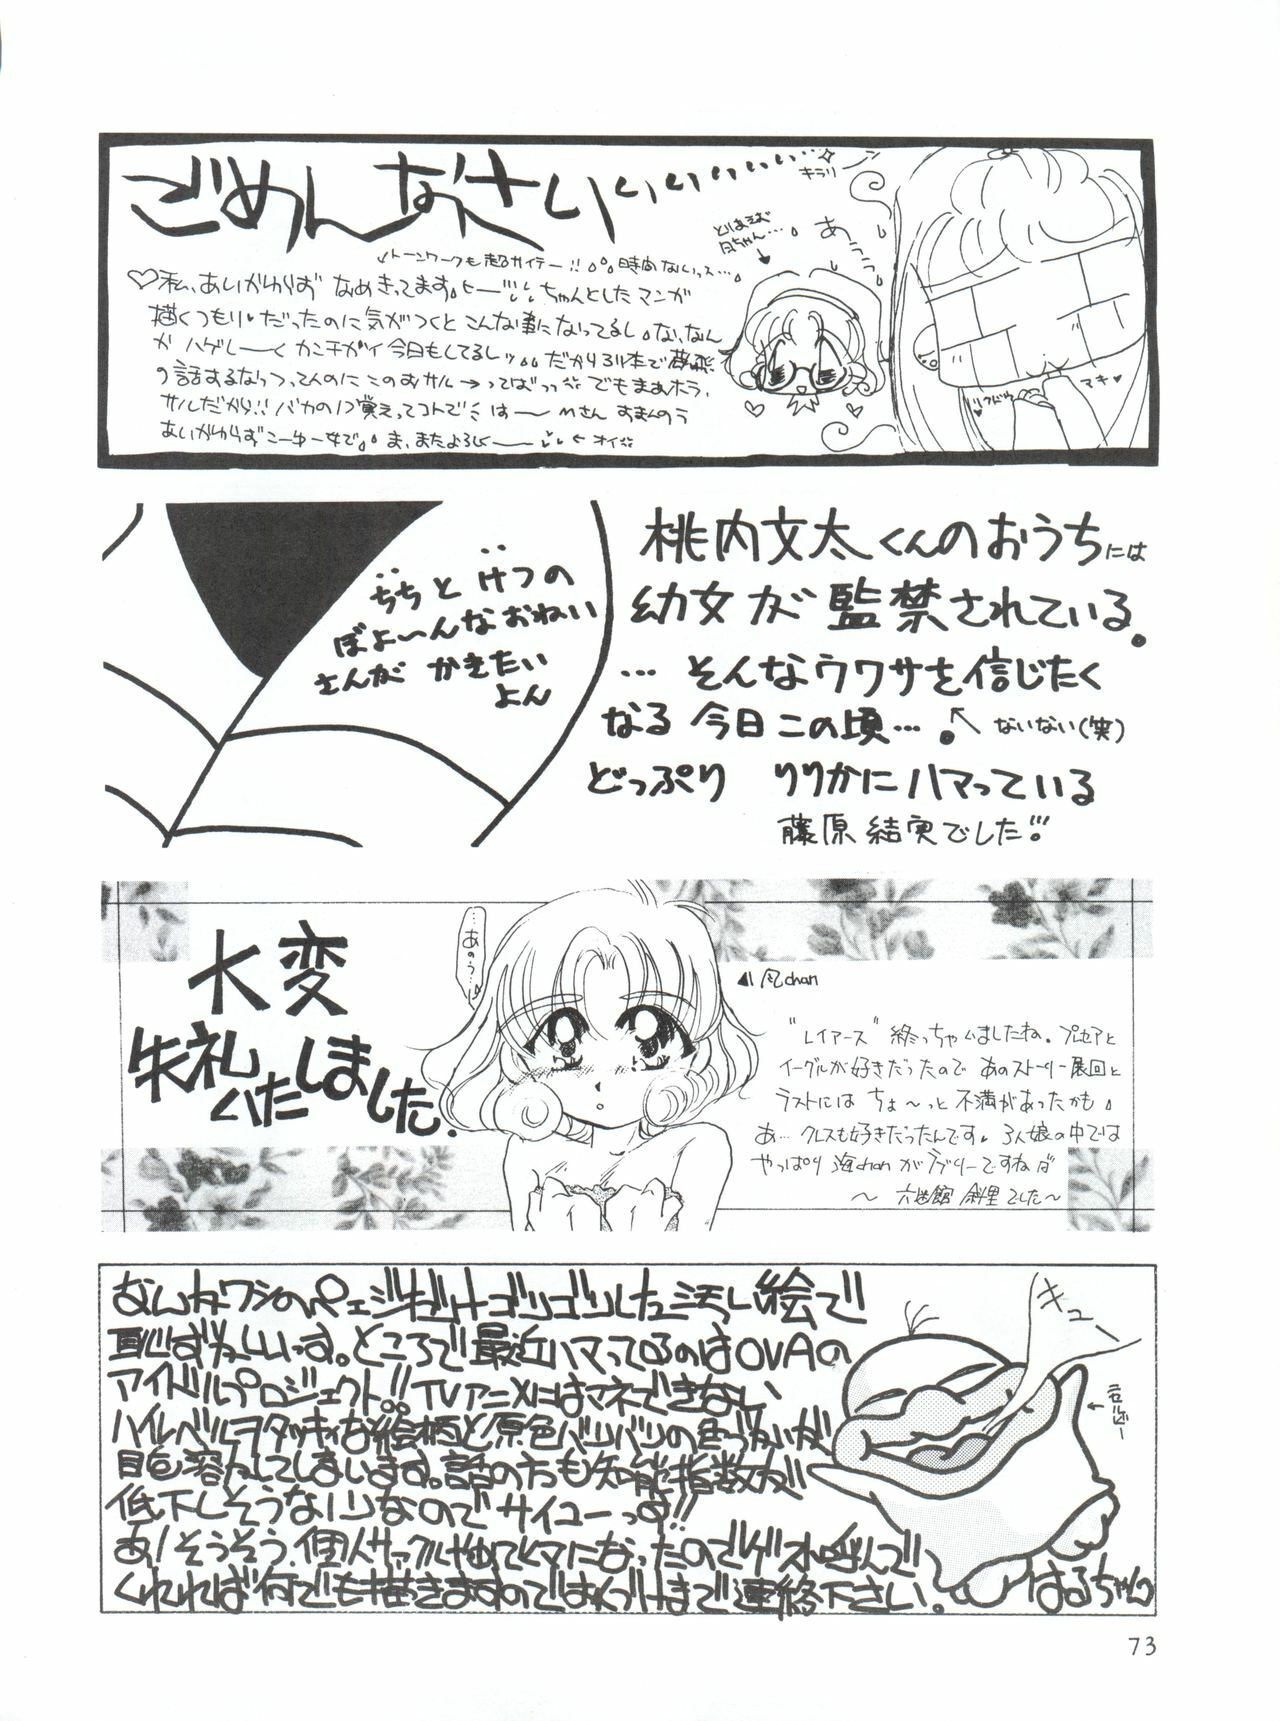 ごめんなさいぃぃぃぃぃ…
キラリ
とりあえず
風ちゃん…
あぅぅぅ
トーンワークも超サイテー!!時間ないっス…
♡私、あいかわらず なめきってます。 ちゃんとしたマンガ
描くつもりだったのに気がつくとこんな事になってるし。な、なん
か ハゲしーく カンチガイ 今日もしてるし
の話するなっつってんのにこのおサル→ってばっっ でもまぁホラ、
サルだから!! バカの1つ覚えってコトで は〜 Mさん すまんのう
あいかわらずこーゆー女で。ま、またよろしく〜 ←オイ
マキ♥
ちちと けつの
ぼよ〜んなおねい
さんが かきたい
よん
桃内文太くんのおうちには
幼女が監禁されている。
… そんなウワサを信じたく
なる 今日この頃…。
↖ ないない(笑)
どっぷり りりかにハマっている
藤原結実でした!!
大変
失礼
いたしました.
…あのう
◀風chan
"レイアース" 終っちゃいましたね。プレセアと
イーグルが好きだったので あのストーリー展回と
ラストには ちょ〜っと 不満があったかも。
あ… クレフも好きだったんです。3人娘の中では
やっぱり 海chanがラブリーですねば
〜 六番館 斜里でした〜
なんかワシのページだけゴリゴリした汚い絵で
恥ずかしいっす。ところで最近ハマってるのはOVAの
アイドルプロジェクト!! TVアニメにはマネできない
ハイレベルヲタッキィな絵柄と原色バリバリの色づかいが
目を溶かしてしまいます。話の方も知能指数が
低下しそうなノリなのでサイコーっす!!
あ!そうそう、個人サークルやめてヒマになったのでゲスト呼んで
くれれば何でも描きますのではるつけまで連絡下さい。
キュー
はるちゃん
73